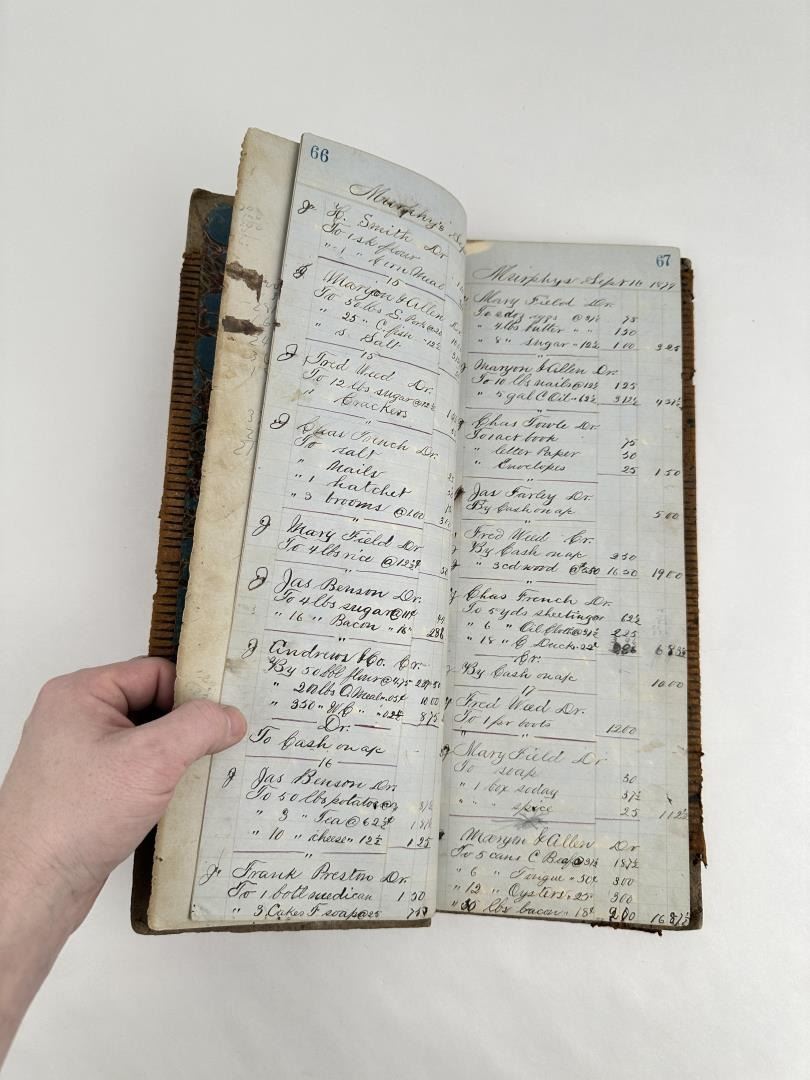 66
Murphy's Sep
Jr H. Smith Dr
To 1 sk flour
" 1 " Corn Meal
15
J Maryon & Allen Dr
To 50 lbs S. Pork @
" 25 " C. fish " 12½
" S. Salt
15
J Fred Weed Dr.
To 12 lbs sugar @ 12½
" Crackers
"
J Chas French Dr.
To salt
" Nails
" 1 hatchet
" 3 brooms @ 1.00 300
"
J Mary Field Dr
To 4 lbs rice @ 12½ 50
"
J Jas Benson Dr.
To 4 lbs sugar @ 11¢
" 16 " Bacon " 16
"
J Andrews & Co. Cr
By 50 bbl flour @ 4.75
" 200 lbs O. Meal " 05¢ 10 00
" 350 " W C " " 02½ 875
Dr.
To Cash on a/c
16
J Jas Benson Dr
To 50 lbs potatoes
" 3 " Tea @ 62½
" 10 " cheese " 12½ 1 25
"
Jr Frank Preston Dr.
To 1 bott medican 1 50
" 3 Cakes F soap @ 25 75
67
Murphys Sept 16 1879
Mary Field Dr.
To 2 doz eggs @ 37½ 75
" 4 lbs butter " " 150
" 8 " sugar " 12½ 1 00 325
"
Maryon & Allen Dr.
To 10 lbs nails @ 12½ 125
" 5 gal C Oil " 62½ 312½ 437½
"
Chas Towle Dr.
To 1 act book 75
" letter Paper 50
" Envelopes 25 150
"
Jas Farley Dr.
By Cash on a/c 500
"
Fred Weed Cr.
By Cash on a/c 250
" 3 cd wood @ 550 1650 1900
"
Chas French Dr.
To 5 yds sheeting 62½
" 6 " Oil Cloth @ 37½ 225
" 18 " C Duck " 22¢
Cr.
By Cash on a/c 1000
17
Fred Weed Dr.
To 1 pr boots 1200
"
J Mary Field Dr
To soap 50
" 1 box soday 37½
" " " spice 25 112½
Maryon & Allen Dr
To 5 cans C Beef @ 37½ 187½
" 6 " Tongue " 50¢ 300
" 12 " Oysters " 25 300
" 50 lbs bacon " 18¢ 900 1687½